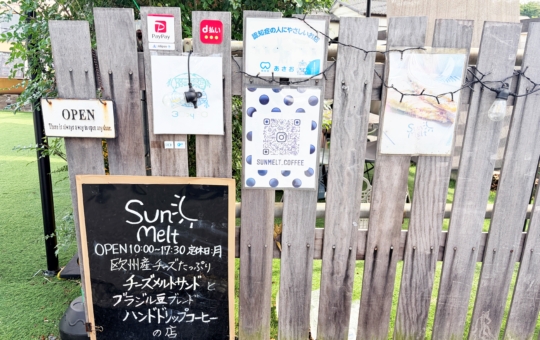 PayPay
d払い
認知症の人にやさしいお店
OPEN
There is always a way in open any time.
SUNMELT.COFFEE
Sun
Melt
Sun
Melt
OPEN 10:00~17:30 定休日:月
欧州産チーズたっぷり
チーズメルトサンドと
ブラジル豆ブレンド
ハンドドリップコーヒー
の店